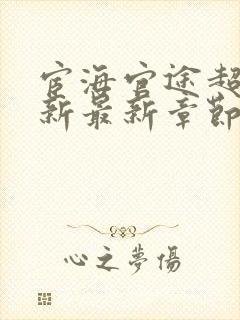 宦海官途超
新最新章節
心之夢傷